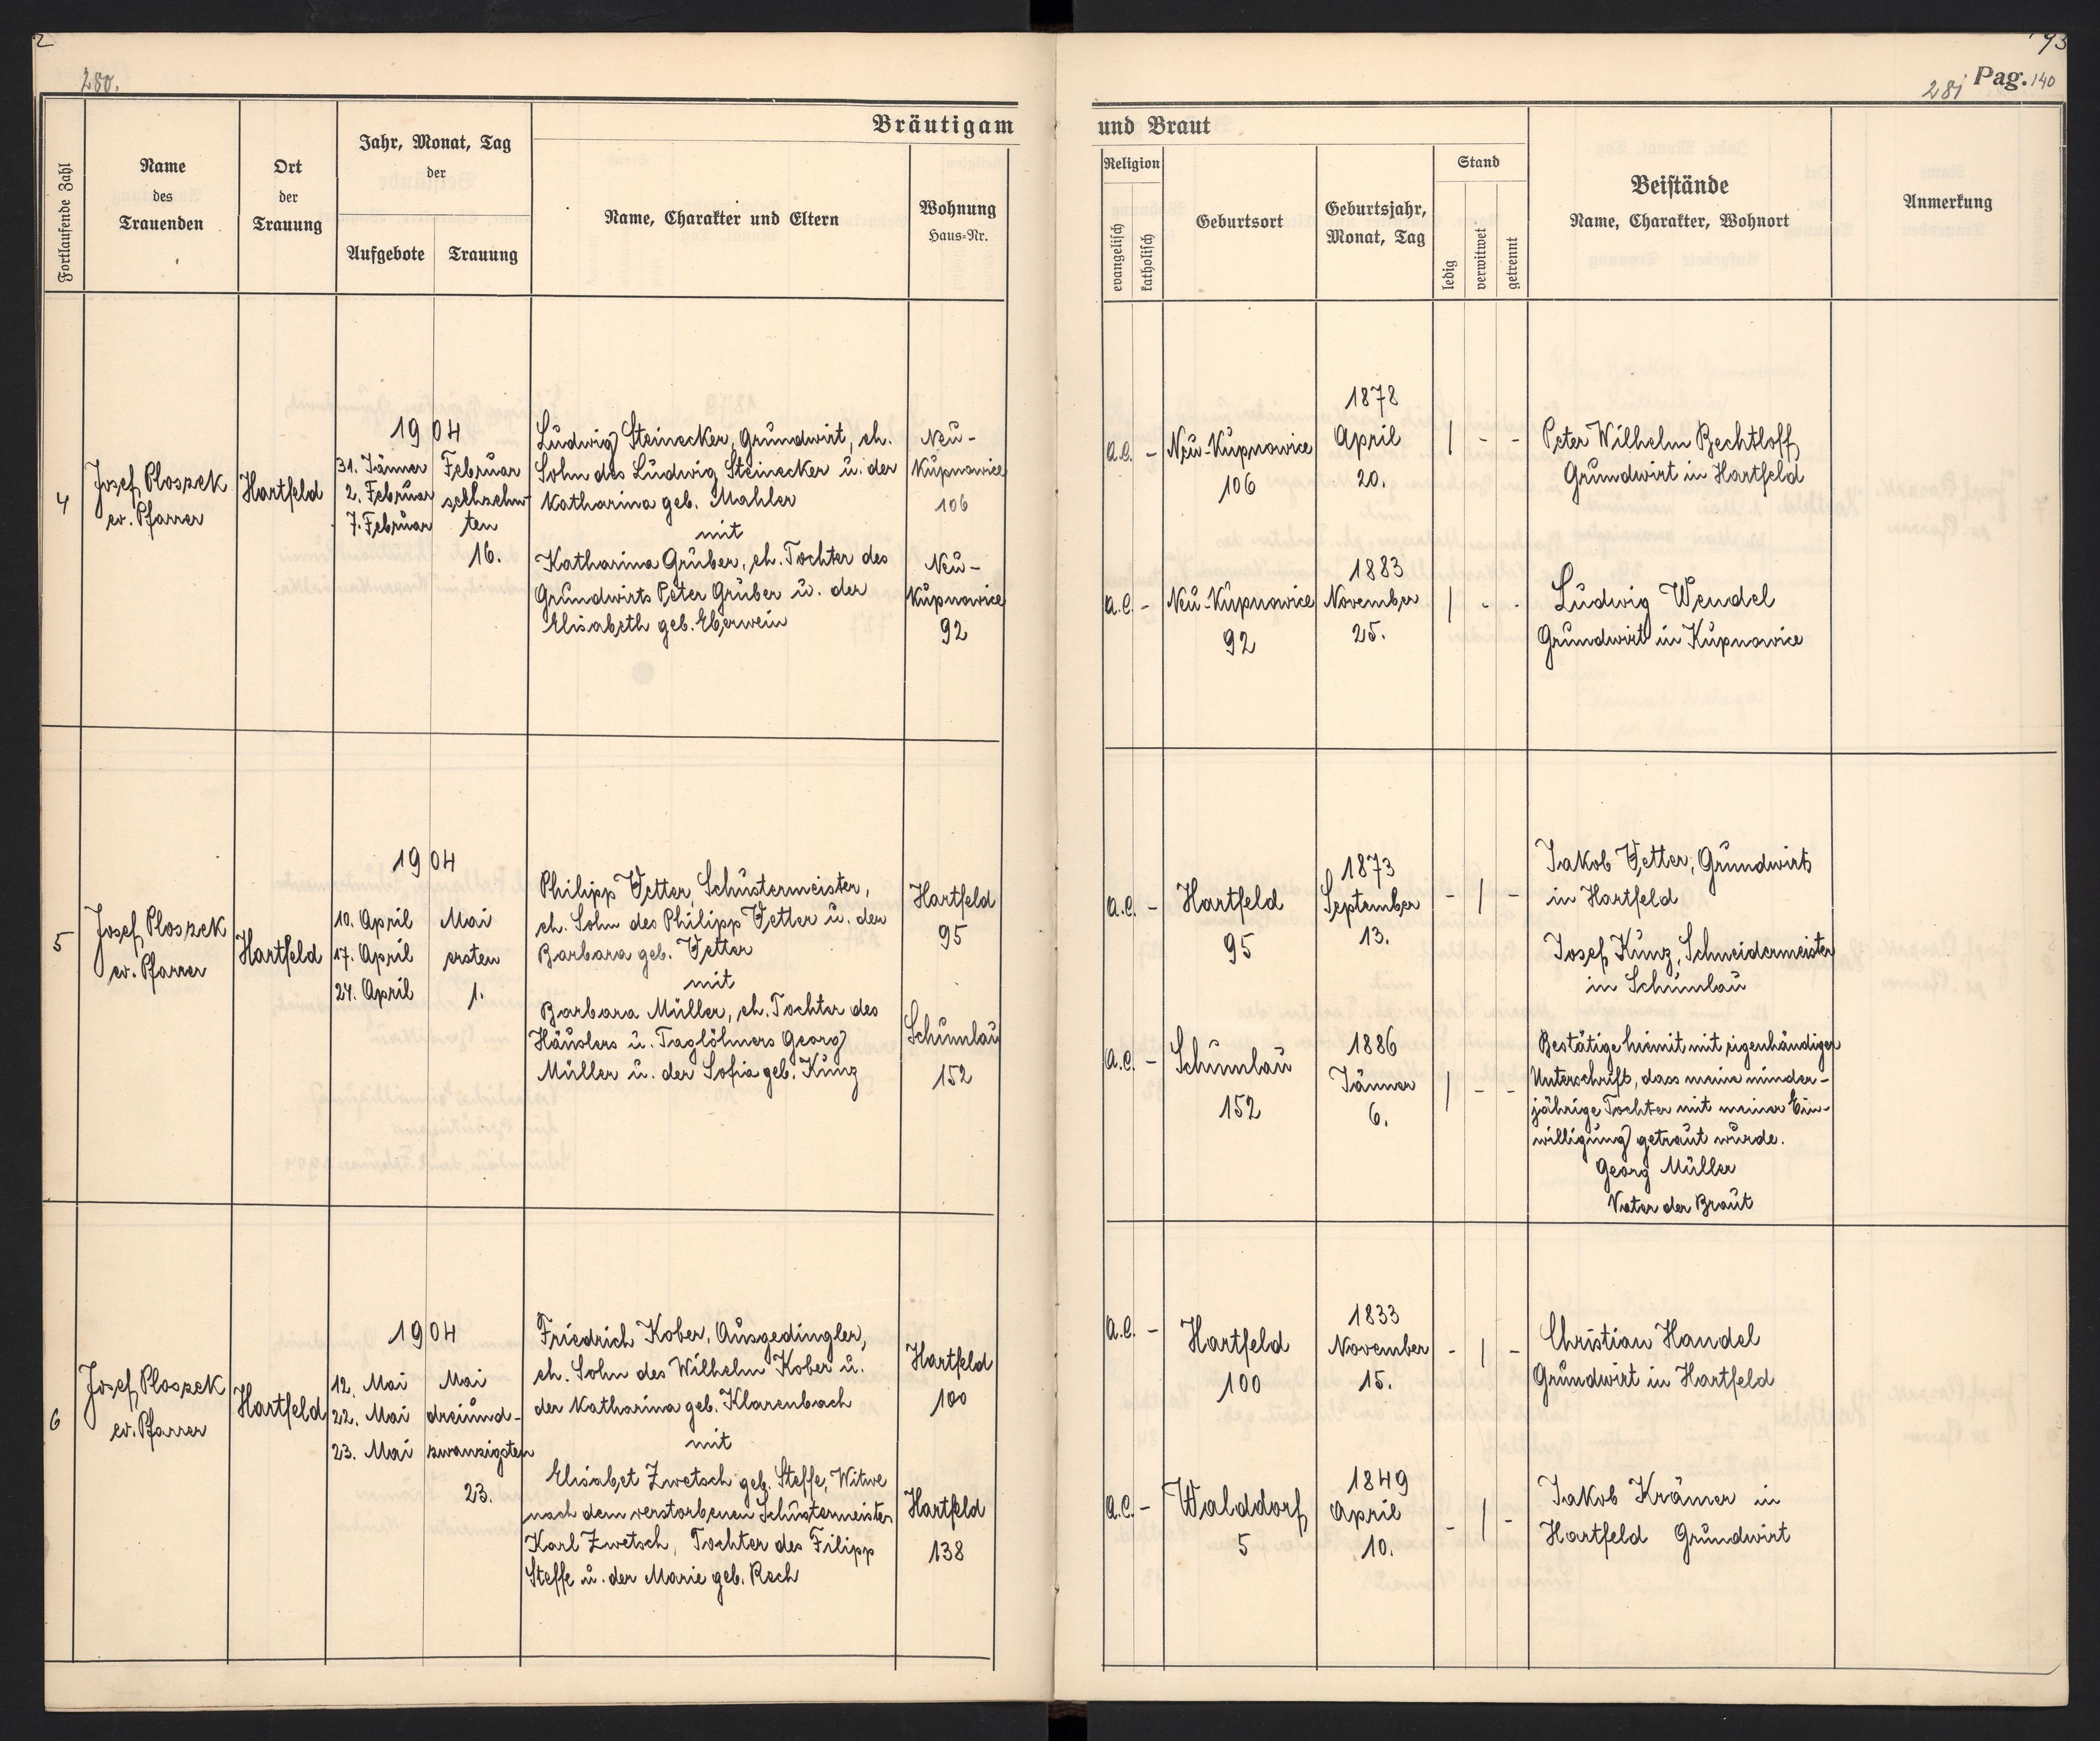 2
280.
Bräutigam
Fortlaufende Zahl
Name
des
Trauenden
Ort
der
Trauung
Jahr, Monat, Tag
der
Aufgebote
Trauung
Name, Charakter und Eltern
Wohnung
Haus=Nr.
4
Josef Ploszek
ev. Pfarrer
Hartfeld
1904
31. Jänner
2. Februar
7. Februar
Februar
sechzehn-
ten
16.
Ludwig Steinecker, Grundwirt, eh.
Sohn des Ludwig Steinecker u. der
Katharina geb. Mahler
mit
Katharina Gruber, eh. Tochter des
Grundwirts Peter Gruber u. der
Elisabeth geb. Eberwein
Neu-
Kupnowice
106
Neu-
Kupnowice
92
5
Josef Ploszek
ev. Pfarrer
Hartfeld
1904
10. April
17. April
24. April
Mai
ersten
1.
Philipp Vetter, Schustermeister,
eh. Sohn des Philipp Vetter u. der
Barbara geb. Vetter
mit
Barbara Müller, eh. Tochter des
Häuslers u. Taglöhners Georg
Müller u. der Sofia geb. Kunz
Hartfeld
95
Schumlau
152
6
Josef Ploszek
ev. Pfarrer
Hartfeld
1904
12. Mai
22. Mai
23. Mai
Mai
dreiund-
zwanzigsten
23.
Friedrich Kober, Ausgedingler,
eh. Sohn des Wilhelm Kober u.
der Katharina geb. Klarenbach
mit
Elisabet Zwetsch geb. Steffe, Witwe
nach dem verstorbenen Schustermeister
Karl Zwetsch, Tochter des Filipp
Steffe u. der Marie geb. Rech
Hartfeld
100
Hartfeld
138
93
281
Pag. 140
und Braut
Religion
evangelisch
katholisch
Geburtsort
Geburtsjahr,
Monat, Tag
Stand
ledig
verwitwet
getrennt
Beistände
Name, Charakter, Wohnort
Anmerkung
a.c. -
Neu-Kupnowice
106
1878
April
20.
| - -
Peter Wilhelm Bechtloff
Grundwirt in Hartfeld
a.c. -
Neu-Kupnowice
92
1883
November
25.
| - -
Ludwig Wendel
Grundwirt in Kupnowice
a.c. -
Hartfeld
95
1873
September
13.
- | -
Jakob Vetter, Grundwirts
in Hartfeld
Josef Kunz, Schneidermeister
in Schumlau
a.c. -
Schumlau
152
1886
Jänner
6.
| - -
Bestätige hiemit mit eigenhändiger
Unterschrift, dass meine minder-
jährige Tochter mit meiner Ein-
willigung getraut wurde.
Georg Müller
Vater der Braut
a.c. -
Hartfeld
100
1833
November
15.
- | -
Christian Handel
Grundwirt in Hartfeld
a.c. -
Walddorf
5
1849
April
10.
- | -
Jakob Krämer in
Hartfeld Grundwirt